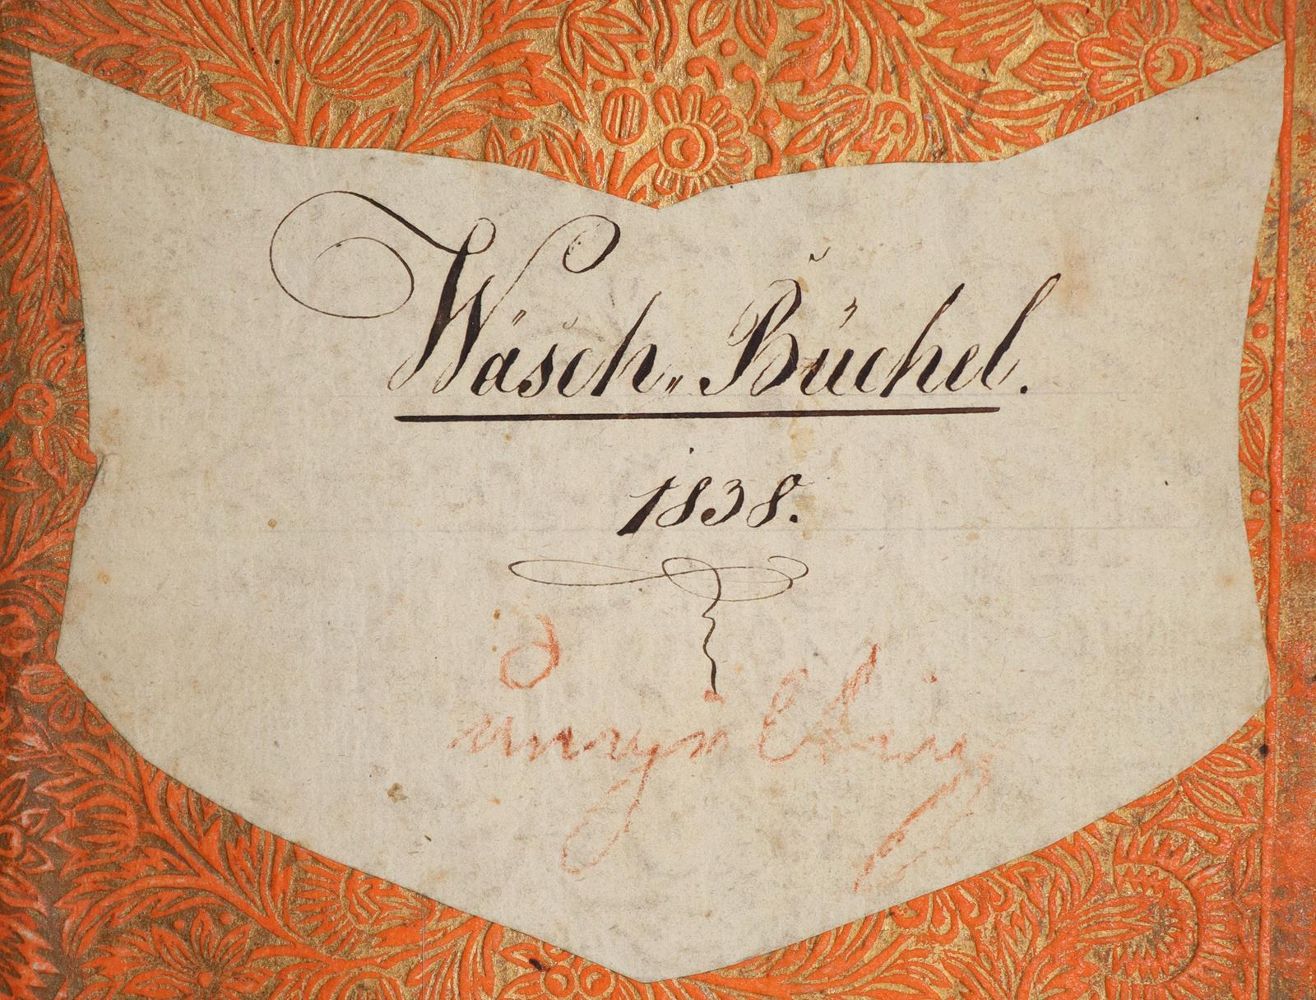 Wäsch„ Büchel.
1838.